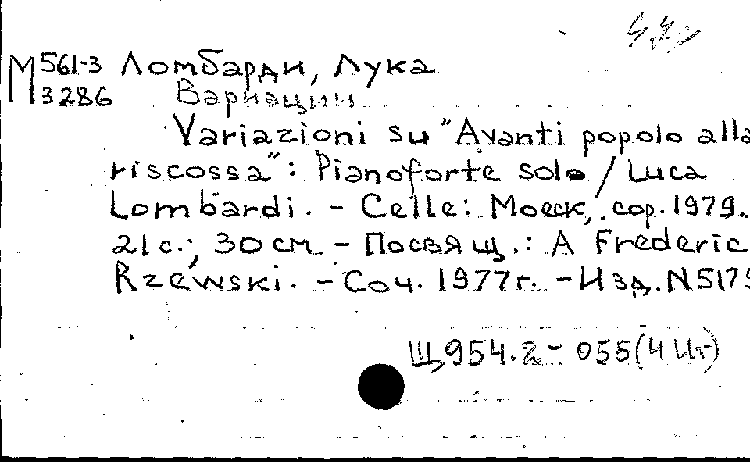 М 561-3 Ломбарди, Лука
3286 Вариации
Variazioni su "Avanti popolo alla
riscossa": Pianoforte solo / Luca
Lombardi. - Celle: Moeck, cop. 1979.
21 с.; 30 см - Посвящ.: A Frederic
Rzewski. - Соч. 1977г. - Изд. N 5179
Щ954.2 - 055(4Ит)